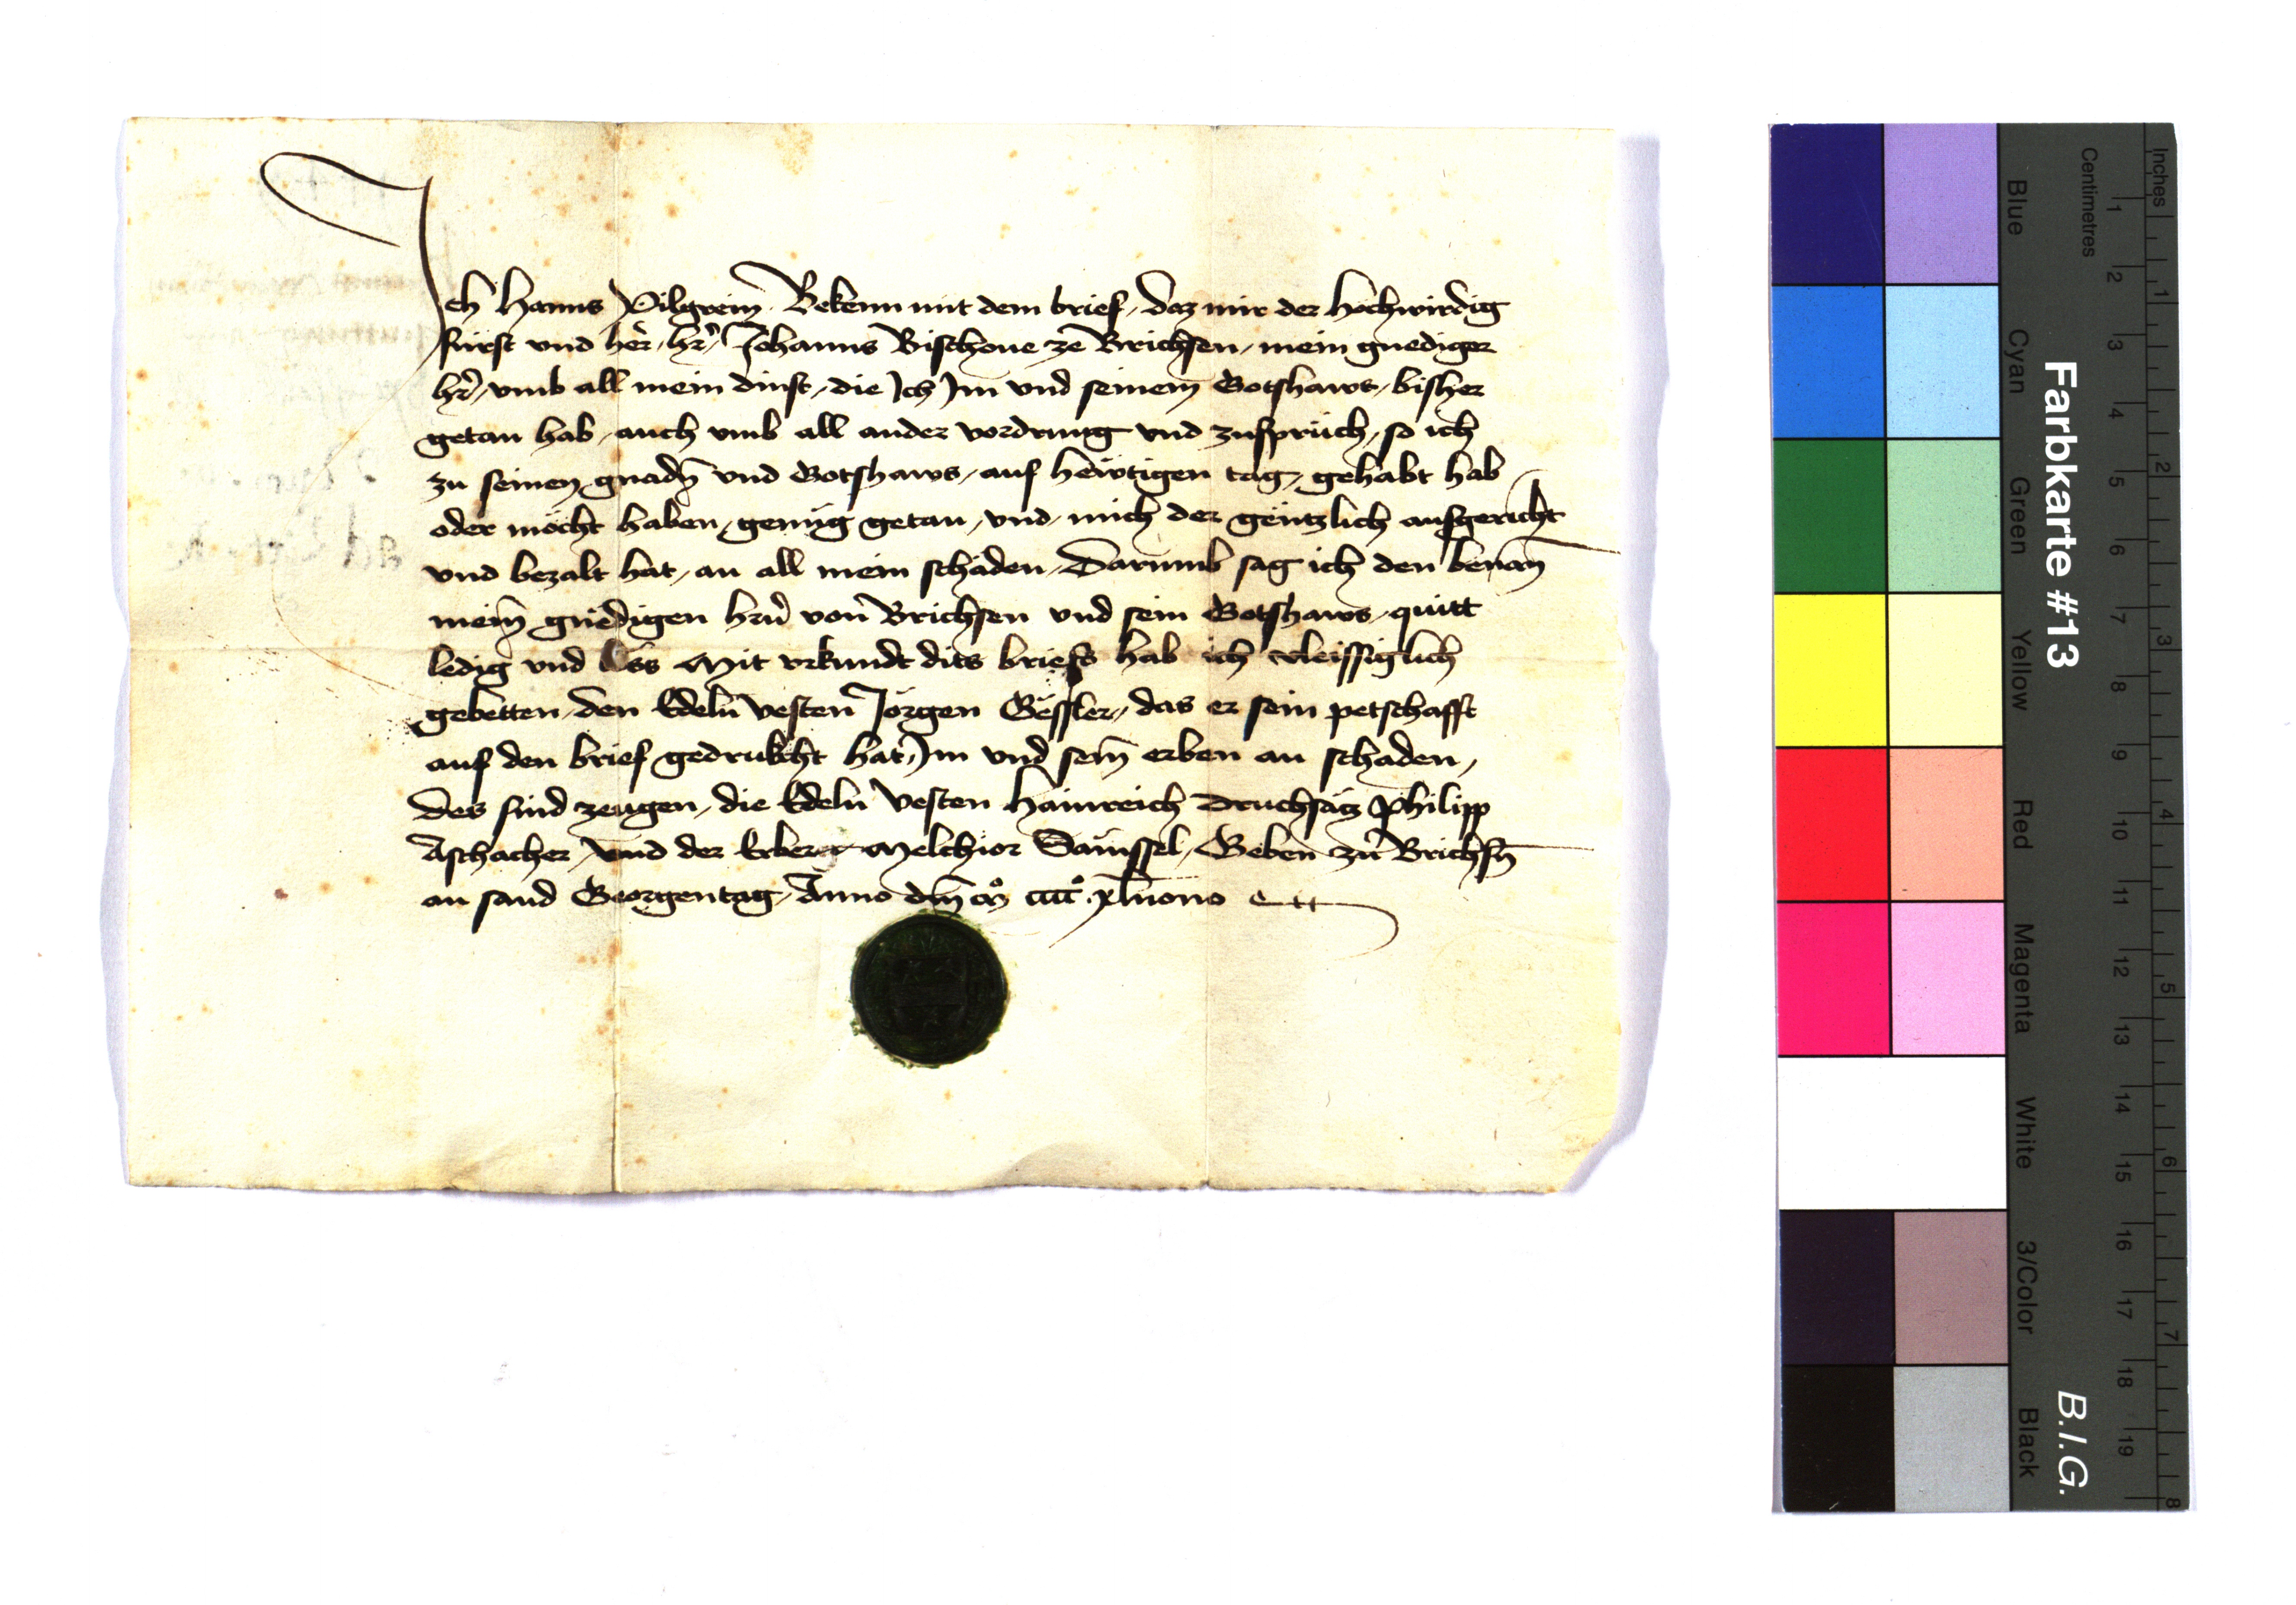 Ich Hanns Pilgreim Bekenn mit dem brief, daz mir der hochwirdig
fürst und her, hr, Johanns Bischoue ze Brichsen, mein gnediger
hr, vmb all mein dinst, die Ich Im vnd seinem Gotshaws, bisher
getan hab, auch vmb all ander vordrung vnd zusprüch, so ich
zu seinen gnadn vnd Gotshaws, auf hewtigen tag, gehabt hab
oder möcht haben, genüg getan, vnd, mich der gentzlich ausgericht
vnd bezalt hat, an all mein schäden, Darumb sag ich den benan
meim gnedigen hrn von Brichsen vnd sein Gotshaws, quitt
ledig vnd los Mit vrkundt dits briefs hab ich vleissiglich
gebetten, den Edeln vesten Jörgen Gessler, das er sein petschafft
auf den brief gedrukcht hat, Im vnd sein erben an schaden,
Des sind zeugen, die Edeln vesten Hainreich Druchsätz Philipp
Aschacher, vnd der Erber Melchior Säussel, Geben zu Brichsn
an sand Georgentag, Anno dm mo cccco xlnono
Farbkarte #13
B.I.G.
Centimetres
Inches
Blue
Cyan
Green
Yellow
Red
Magenta
White
3/Color
Black
1 2 3 4 5 6 7 8 9 10 11 12 13 14 15 16 17 18 19
1 2 3 4 5 6 7 8